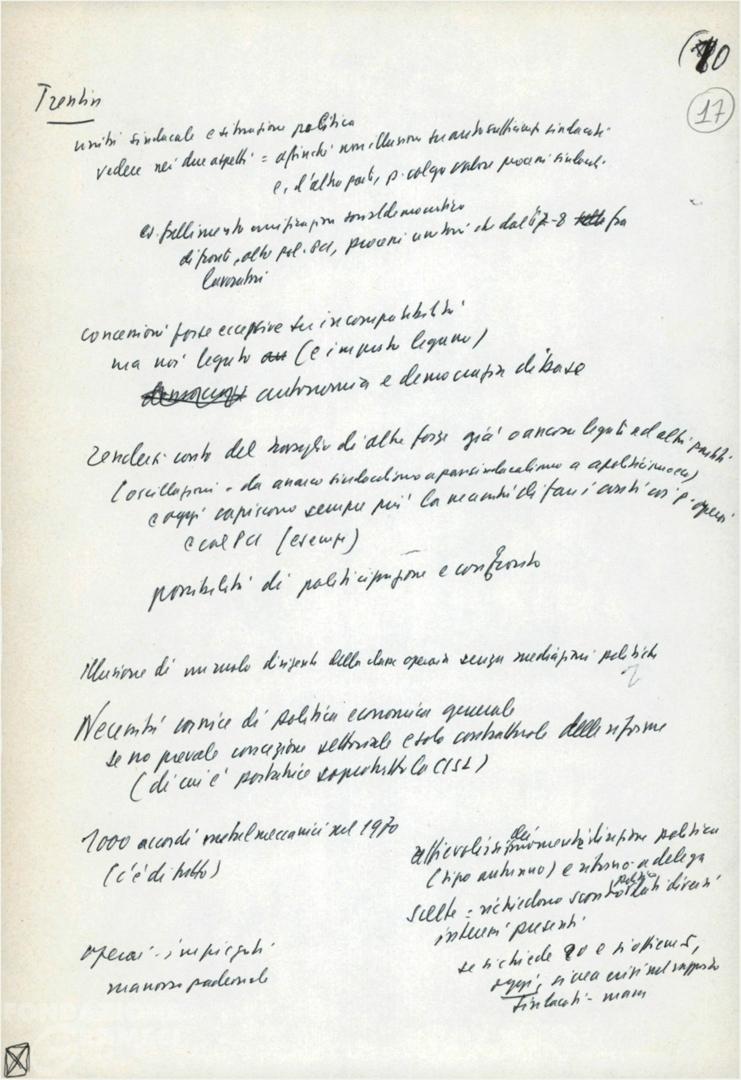 10
17
Trentin
unità sindacale e situazione politica
vedere nei due aspetti = affinché non illusioni su autosufficienza sindacati
e, d'altro parte, p. colga valore processi sindacali
es. fallimento unificazione socialdemocratica
di fronte, altre pol. PCI, processi unitari che dal 67-8 fra
lavoratori
concessioni forse eccessive su incompatibilità
ma noi legato (e imposto legame)
autonomia e democrazia di base
rendersi conto del travaglio di altre forze già o ancora legati ad altri partiti
(oscillazioni - da anarco sindacalismo a pansindacalismo a apoliticismo ecc)
e oggi capiscono sempre più la necessità di fare i conti così p. operai
e col PCI (esempi)
possibilità di politicizzazione e confronto
illusione di un ruolo dirigente della classe operaia senza mediazioni politiche
Necessità cornice di politica economica generale
se no prevale concezione settoriale e solo contrattuale delle riforme
(di cui è portatrice soprattutto la CISL)
7000 accordi metalmeccanici nel 1970
(c'è di tutto)
operai - impiegati
manovra padronale
affievolirsi dei momenti di unione politica
(tipo autunno) e ritorno a delega
scelte = richiedono scontro politico dati diversi
interessi presenti
se si chiede 20 e si ottiene 5,
oggi, si crea crisi nel rapporto
sindacati - massa
FONDAZIONE